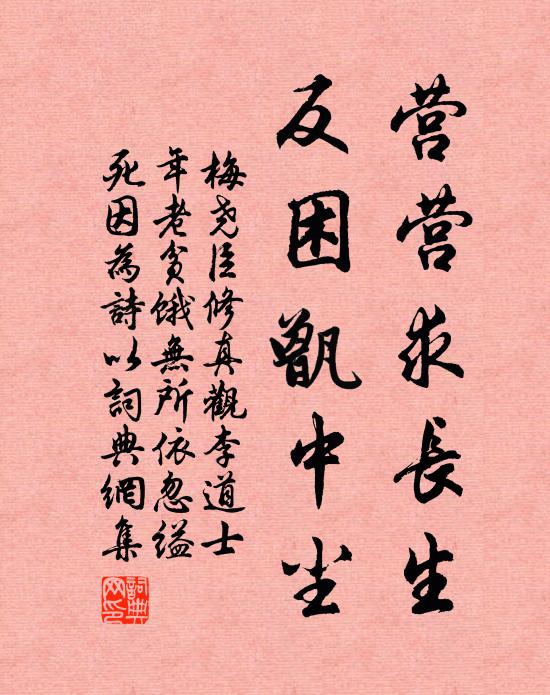 营营求長生
反困甑中尘
梅尧臣修真觀李道士
年老貧餓無所依忽縊
死因為詩以詞典網集
詞典网印